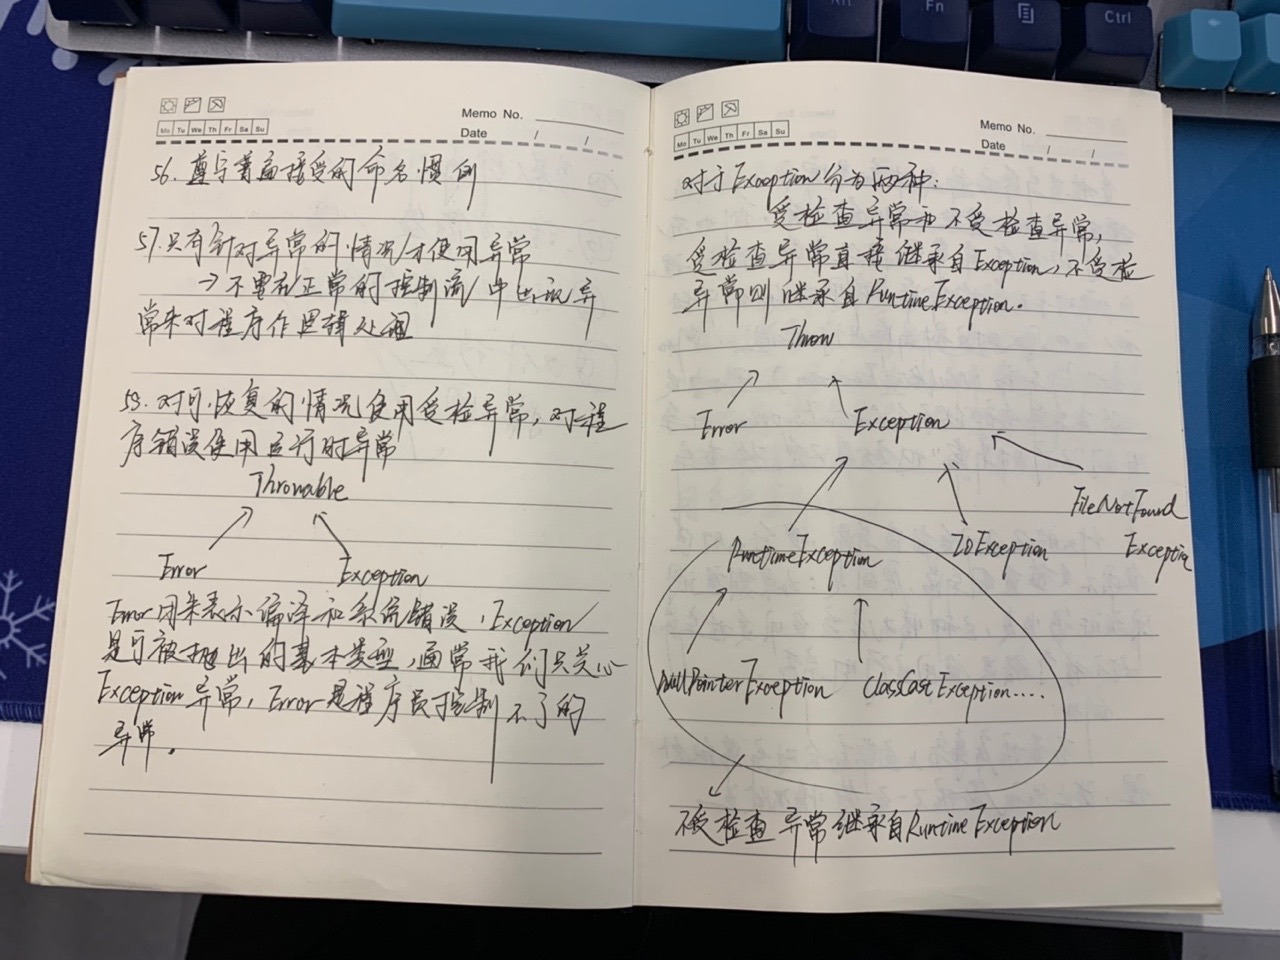 Alt
Fn
Ctrl
Memo No.
Mo Tu We Th Fr Sa Su
Date / /
56. 遵守普遍接受的命名惯例
57. 只有针对异常的情况才使用异常
→ 不要在正常的控制流中出现异
常来对程序作逻辑处理
58. 对可恢复的情况使用受检异常,对程
序错误使用运行时异常
Throwable
Error
Exception
Error用来表示编译和系统错误,Exception
是可被抛出的基本类型,通常我们只关心
Exception异常,Error是程序员控制不了的
异常。
Memo No.
Mo Tu We Th Fr Sa Su
Date / /
对于Exception分为两种:
受检查异常和不受检查异常,
受检查异常直接继承自Exception,不受检
异常则继承自RuntimeException.
Throw
Error
Exception
FileNotFound
Exceptio
RuntimeException
IOException
NullPointerException
ClassCastException....
不受检查异常继承自RuntimeException